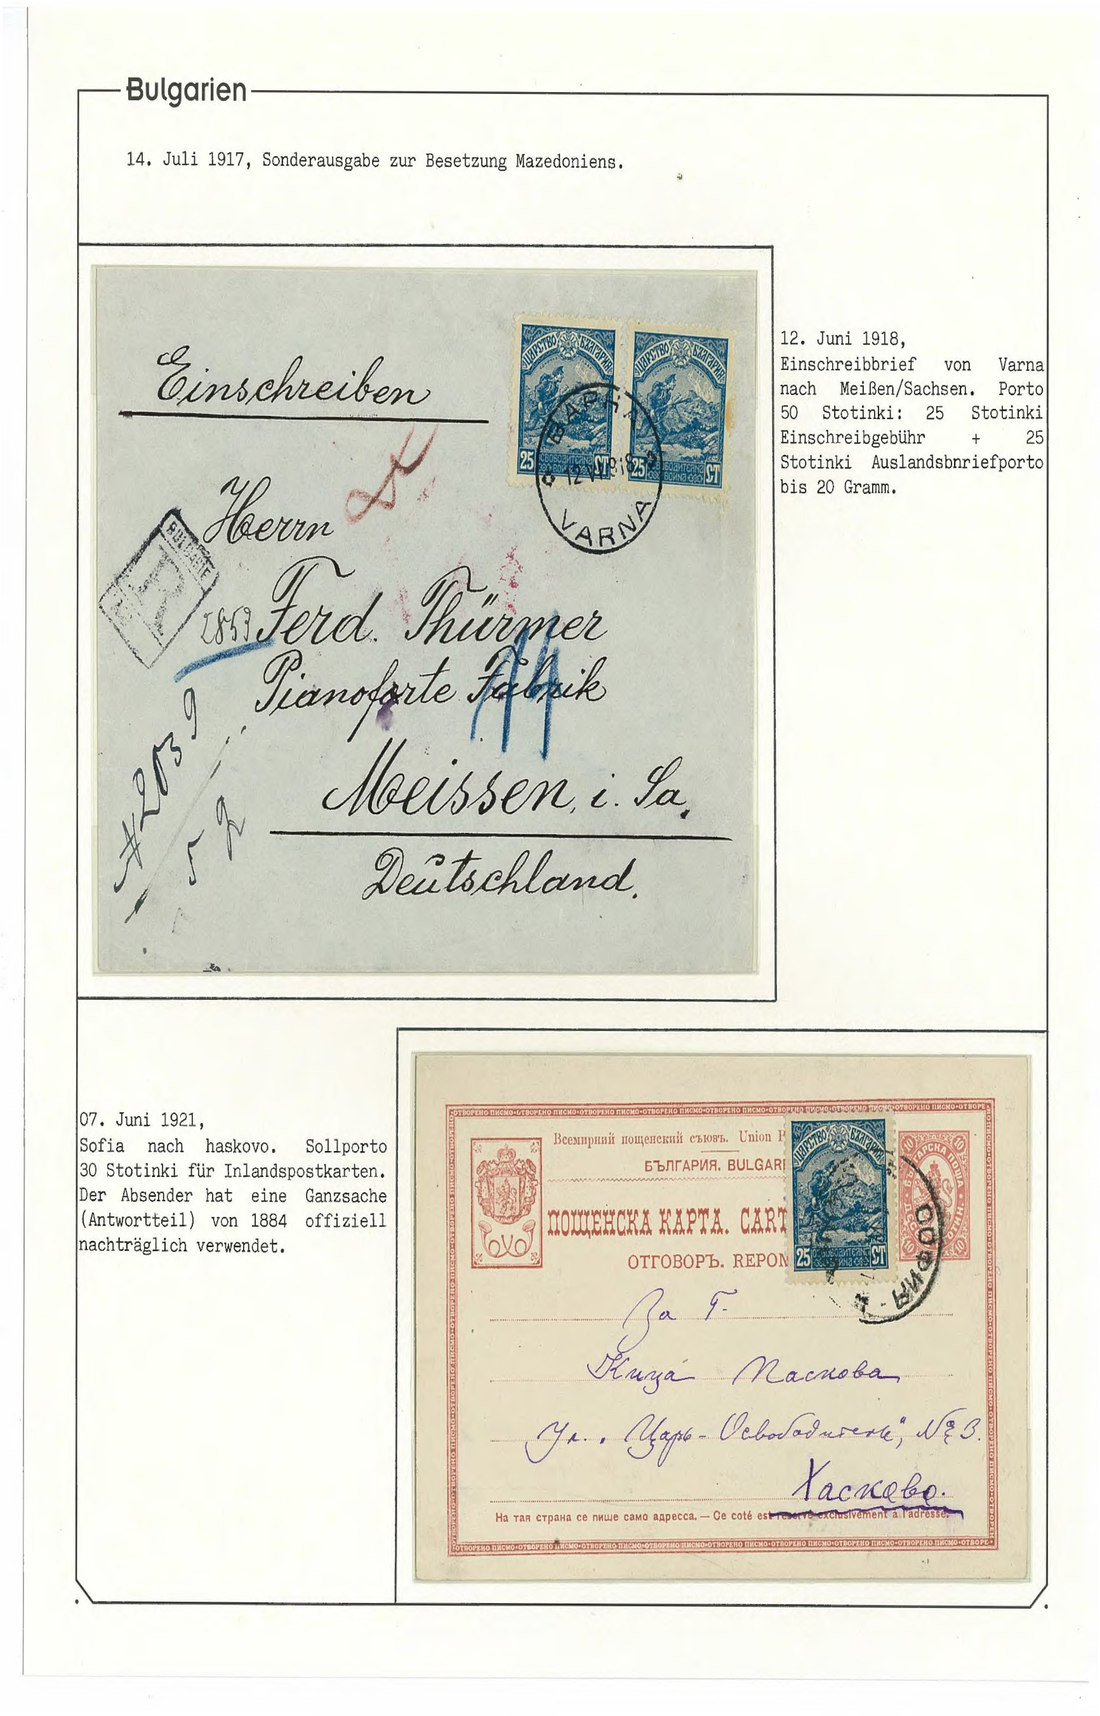 Bulgarien
14. Juli 1917, Sonderausgabe zur Besetzung Mazedoniens.
ЦАРСТВО БЪЛГАРИЯ
25 СТ
ЦАРСТВО БЪЛГАРИЯ
25 СТ
ВАРНА
12 VI 918
VARNA
Einschreiben
Herrn
BULGARIE
R
2859
Ferd. Thürmer
Pianoforte Fabrik
Meissen, i. Sa,
Deutschland.
5 g
12. Juni 1918,
Einschreibbrief von Varna
nach Meißen/Sachsen. Porto
50 Stotinki: 25 Stotinki
Einschreibgebühr + 25
Stotinki Auslandsbnriefporto
bis 20 Gramm.
07. Juni 1921,
Sofia nach haskovo. Sollporto
30 Stotinki für Inlandspostkarten.
Der Absender hat eine Ganzsache
(Antwortteil) von 1884 offiziell
nachträglich verwendet.
Всемирний пощенский съюзъ. Union
БЪЛГАРИЯ. BULGARI
ПОЩЕНСКА КАРТА. CART
ОТГОВОРЪ. REPON
ЦАРСТВО БЪЛГАРИЯ
25 СТ
10 10
СОФИЯ
За Г.
Кица Паскова
Ул. „Царь-Освободитель", № 3.
Хасково.
На тая страна се пише само адресса. — Ce coté est réservé exclusivement à l'adresse.